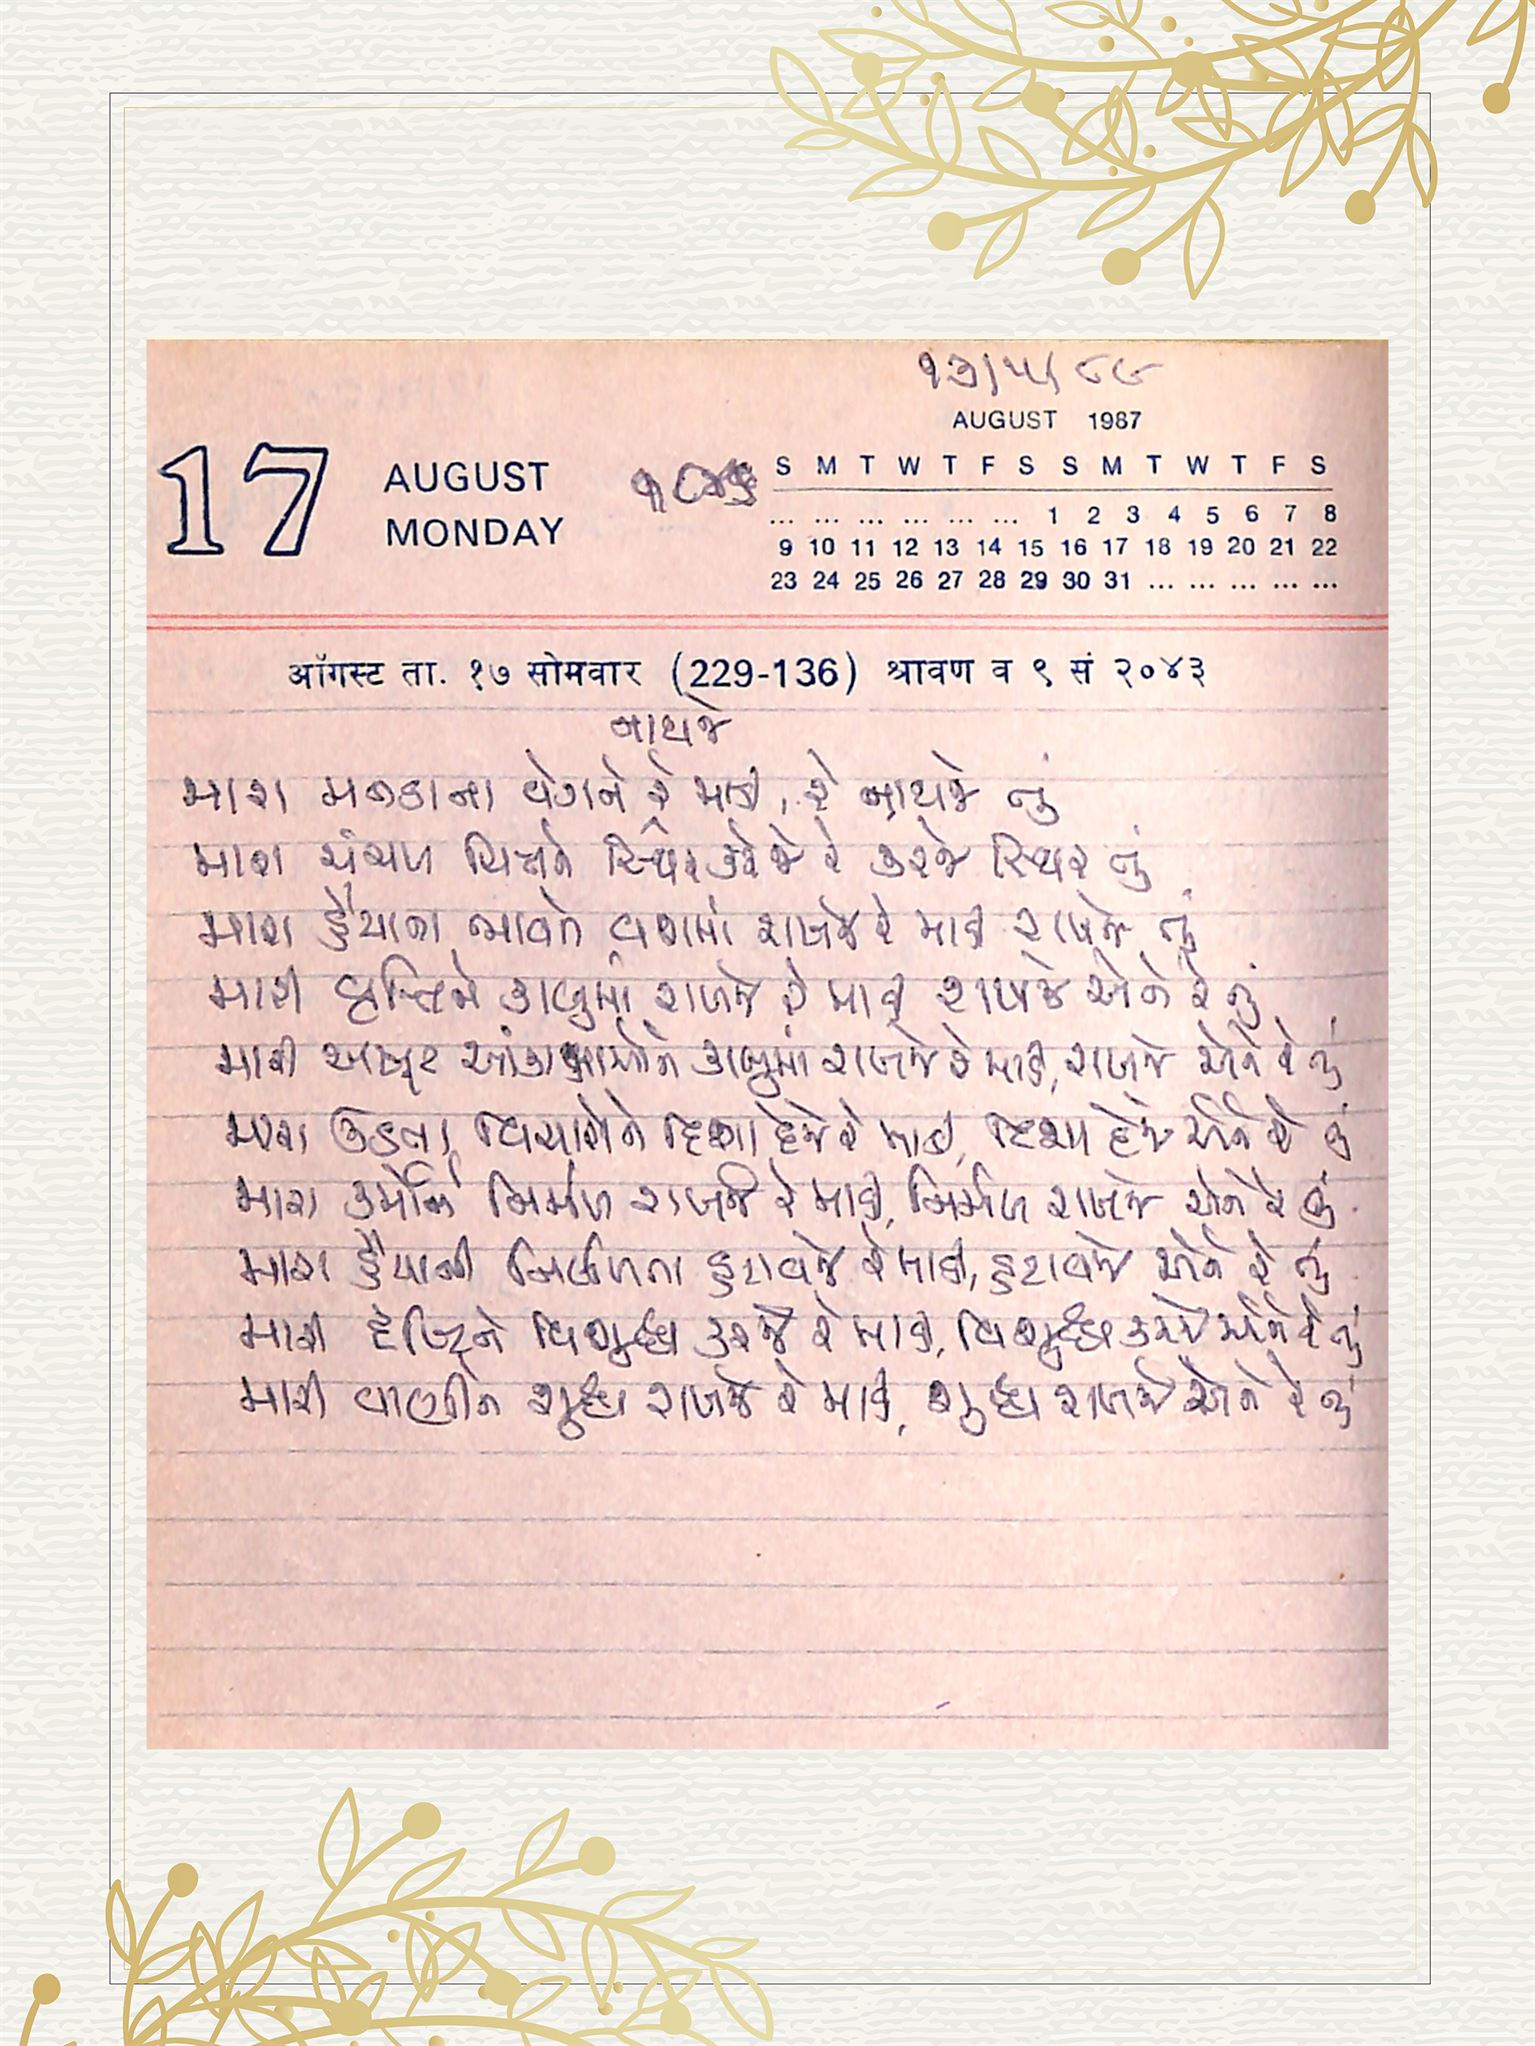 ૧૭/૫/૮૮
AUGUST 1987
17 AUGUST
MONDAY
S M T W T F S S M T W T F S
... ... ... ... ... ... 1 2 3 4 5 6 7 8
9 10 11 12 13 14 15 16 17 18 19 20 21 22
23 24 25 26 27 28 29 30 31 ... ... ... ... ...
ऑगस्ट ता. १७ सोमवार (229-136) श्रावण व ९ सं २०४३
નાથજે
મારા મનડાના વેગને રે માડી, રે નાથજે તું
મારા ચંચળ ચિત્તને સ્થિર કરજે રે કરજે સ્થિર તું
મારા હૈયાના ભાવને વશમાં રાખજે રે માડી રાખજે તું
મારી વૃત્તિને કાબુમાં રાખજે રે માડી રાખજે એને રે તું
મારી અખૂટ આંકાક્ષાઓને કાબુમાં રાખજે રે માડી, રાખજે એને રે તું
મારા ઉઠતા વિચારોને દિશા દેજે રે માડી, દિશા દેજે એને રે તું
મારા કર્મોને નિર્મળ રાખજે રે માડી, નિર્મળ રાખજે એને રે તું
મારા હૈયાની નિર્બળતા હટાવજે રે માડી, હટાવજે એને રે તું
મારી દૃષ્ટિને વિશુદ્ધ કરજે રે માડી, વિશુદ્ધ કરજે એને રે તું
મારી વાણીને શુદ્ધ રાખજે રે માડી, શુદ્ધ રાખજે એને રે તું